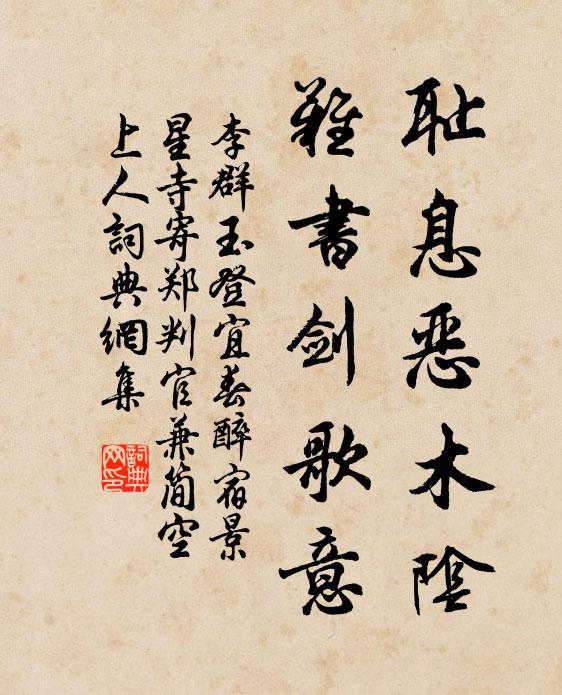 耻息恶木陰
難書劍歌意
李群玉登宜春醉宿景
星寺寄郑判官兼簡空
上人詞典網集
詞典网印